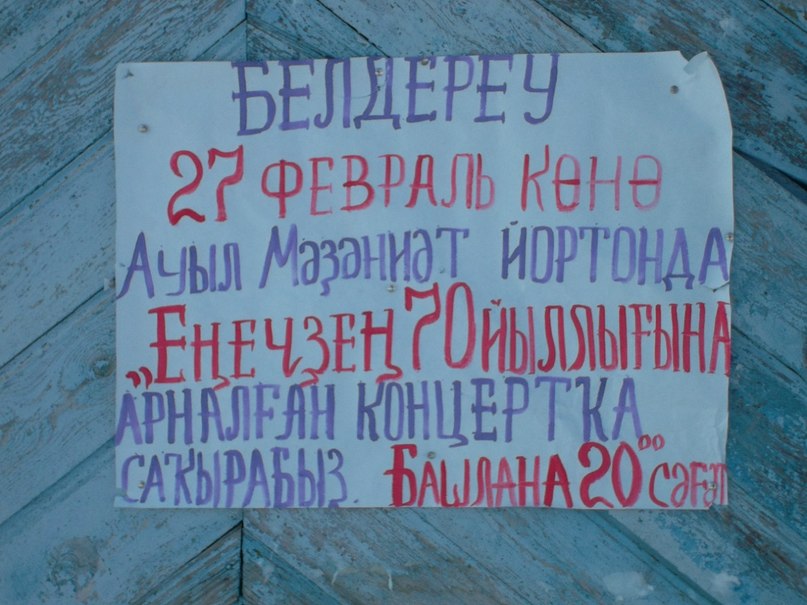 БЕЛДЕРЕҮ
27 ФЕВРАЛЬ КӨНӨ
Ауыл Мәҙәниәт йортонда
„ЕҢЕҮҘЕҢ 70 йыллығына
арналған концертҡа
саҡырабыҙ. Башлана 20⁰⁰ сәғәт